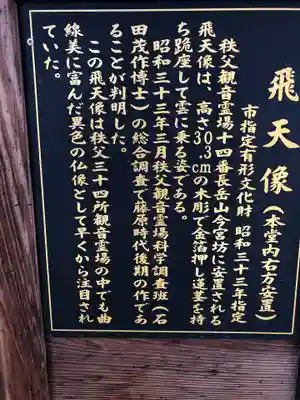 飛天像(本堂内右方安置)
市指定有形文化財 昭和三十三年指定
秩父観音霊場十四番長岳山今宮坊に安置される
飛天像は、高さ30.3cmの木彫で金箔押し蓮茎を持
ち跪座して雲に乗る姿である。
昭和三十三年三月秩父観音霊場科学調査班(石
田茂作博士)の総合調査で藤原時代後期の作であ
ることが判明した。
この飛天像は秩父三十四所観音霊場の中でも曲
線美に富んだ異色の仏像として早くから注目され
ていた。